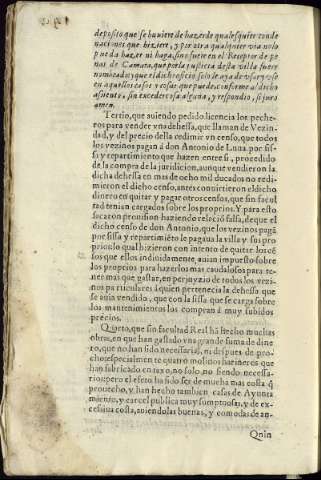 deposito que se huuiere de hazer de qualesquier conde
naciones que hiziere, y por otra qualquier via no lo
pueda hazer ni haga, sino fuere en el Receptor de pe
nas de Camara, que por la justicia desta villa fuere
nombrado: y que el dicho oficio solo le aya de vsar y vse
en aquellos casos y cosas que puede, conforme al dicho
assiento, sin exceder cosa alguna, y respondio, si juro
amen.
Tertio, que auiendo pedido licencia los peche-
ros para vender vna dehessa, que llaman de Vezin-
dad, y del precio della redimir vn censo, que todos
los vezinos pagan â don Antonio de Luna por sis-
si y repartimiento que hazen entre si, procedido
de la compra de la juridicion, aunque vendieron la
dicha dehessa en mas de ocho mil ducados no redi-
mieron el dicho censo, antes conuirtieron el dicho
dinero en quitar y pagar otros censos, que sin facul
tad tenian cargados sobre los proprios. Y para esto
sacaron prouision haziendo relació falsa, de que el
dicho censo de don Antonio, que los vezinos pagá
por sissa y repartimiéto le pagaua la villa y sus pro
prios: lo qual hizieron con intento de quitar los cé
sos que ellos indiuidamente, auian impuesto sobre
los proprios para hazerlos mas caudalosos para te-
ner mas que gastar, en perjuyzio de todos los vezi-
nos particulares â quien pertenecia la dehessa que
se auia vendido, que con la sissa que se carga sobre
los mantenimientos los compran â muy subidos
precios.
Quarto, que sin facultad Real há hecho muchas
obras, en que han gastado vna grande suma de dine
ro, que no han sido necessarias, ni de pues de pro-
cho: especialmente quatro molinos harineros que
han fabricado en raxo, no solo, no siendo necessa-
rios: pero el efeto ha sido ser de mucha mas costa q̃
prouecho, y han hecho tambien casas de Ayunta
miento, y carcel publica muy sumptuosas, y de ex-
cessiua costa, auiendolas buenas, y comodas de an-
Quin